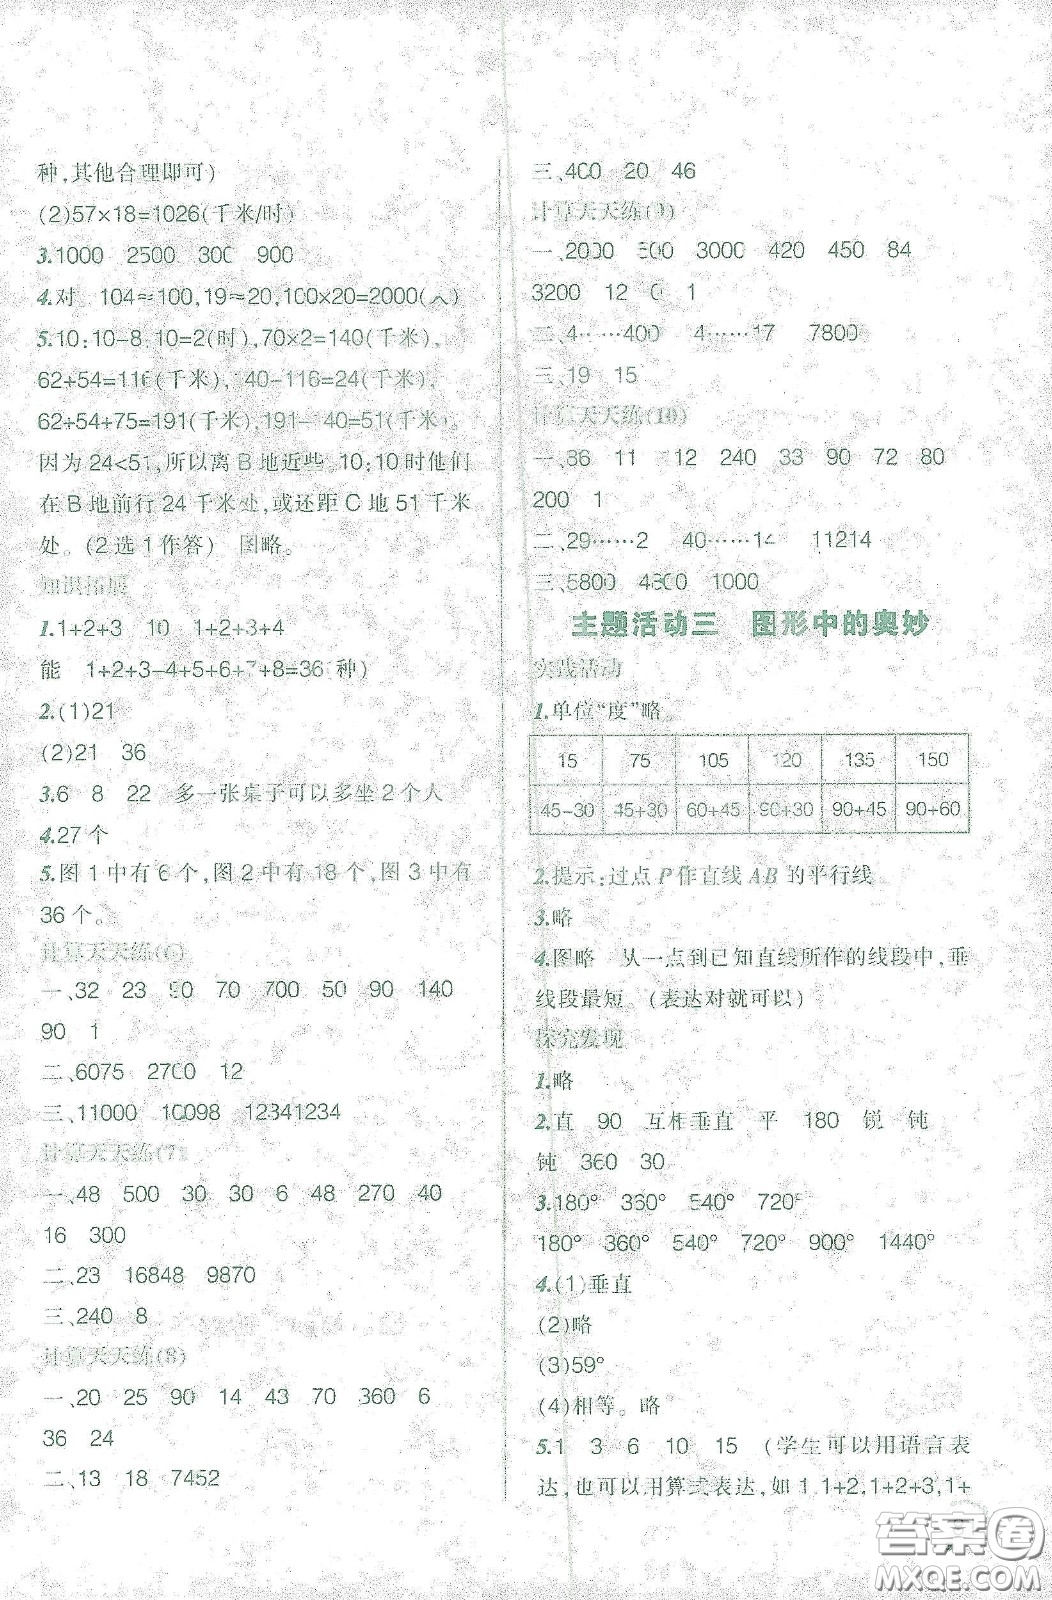 种,其他合理即可)
(2)57×18=1026(千米/时)
3.1000 2500 300 900
4.对 104≈100,19≈20,100×20=2000(人)
5.10:10-8:10=2(时),70×2=140(千米),
62+54=116(千米),140-116=24(千米),
62+54+75=191(千米),191-140=51(千米),
因为24<51,所以离B地近些,10:10时他们
在B地前行24千米处,或还距C地51千米
处。(2选1作答) 图略。
知识拓展
1.1+2+3 10 1+2+3+4
能 1+2+3+4+5+6+7+8=36(种)
2.(1)21
(2)21 36
3.6 8 22 多一张桌子可以多坐2个人
4.27个
5.图1中有6个,图2中有18个,图3中有
36个。
计算天天练(6)
一、32 23 90 70 700 50 90 140
90 1
二、6075 2700 12
三、11000 10098 12341234
计算天天练(7)
一、48 500 30 30 6 48 270 40
16 300
二、23 16848 9870
三、240 8
计算天天练(8)
一、20 25 90 14 43 70 360 6
36 24
二、13 18 7452
三、400 20 46
计算天天练(9)
一、2000 600 3000 420 450 84
3200 12 0 1
二、4……400 4……17 7800
三、19 15
计算天天练(10)
一、36 11 12 240 33 90 72 80
200 1
二、29……2 40……14 11214
三、5800 4800 1000
主题活动三 图形中的奥妙
实践活动
1.单位“度”略。
15 75 105 120 135 150
45-30 45+30 60+45 90+30 90+45 90+60
2.提示:过点P作直线AB的平行线。
3.略
4.图略 从一点到已知直线所作的线段中,垂
线段最短。(表达对就可以)
探究发现
1.略
2.直 90 互相垂直 平 180 锐 钝
钝 360 30
3.180° 360° 540° 720°
180° 360° 540° 720° 900° 1440°
4.(1)垂直
(2)略
(3)59°
(4)相等。略
5.1 3 6 10 15 (学生可以用语言表
达,也可以用算式表达,如1,1+2,1+2+3,1+
答案圈
MXQE.COM